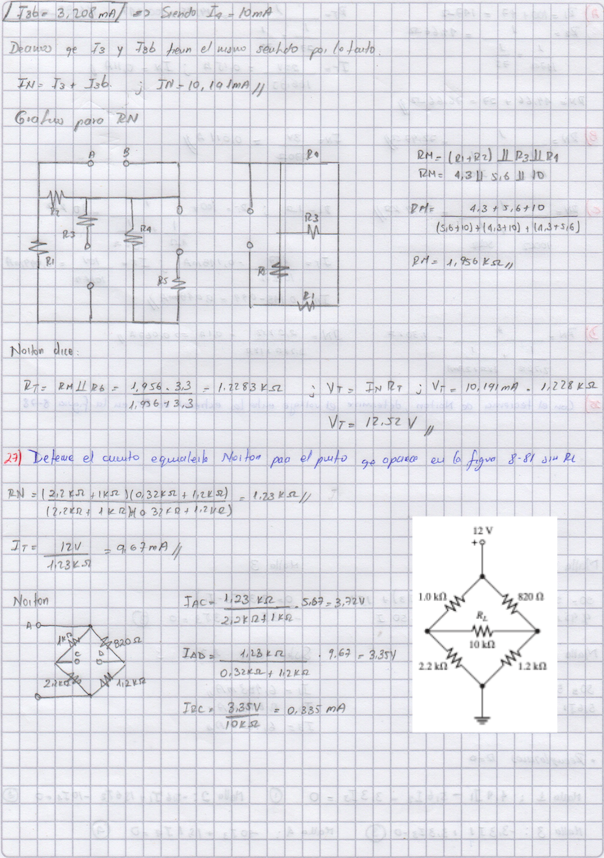 I3b = 3,208mA/ => Siendo I9 = 10mA
Decimos qe I3 y I3b tienen el mismo sentido por lo tanto.
IN = I3 + I3b. ; IN = 10,191mA //
Grafico para RN
A B
R2
R3
R4
R1
R5
R4
R3
R1
RM = (R1+R2) || R3 || R4
RM = 4,3 || 5,6 || 10
RM = 4,3 + 5,6 + 10
(5,6+10)+(4,3+10)+(4,3+5,6)
RM = 1,956 KΩ //
Norton dice:
RT = RM || R6 = 1,956 . 3,3 = 1,2283 KΩ ; VT = IN RT ; VT = 10,191mA . 1,228 KΩ
1,956 + 3,3
VT = 12,52 V //
27) Determine el circuito equivalente Norton para el puente qe aparece en la figura 8-81 sin RL
RN = (2,2KΩ + 1KΩ)(0,32KΩ + 1,2KΩ) = 1.23 KΩ //
(2,2KΩ + 1KΩ)(0,32KΩ + 1,2KΩ)
IT = 12V = 9,67mA //
1,23KΩ
Norton
A
1KΩ
820Ω
C D
2,2KΩ
1,2KΩ
IAC = 1,23 KΩ . 5,67 = 3,72V
2,2KΩ + 1KΩ
IAD = 1,23KΩ . 9,67 = 3,35V
0,32KΩ + 1,2KΩ
IBC = 3,35V = 0,335 mA
10KΩ
12 V
+
1.0 kΩ
820 Ω
RL
10 kΩ
2.2 kΩ
1.2 kΩ